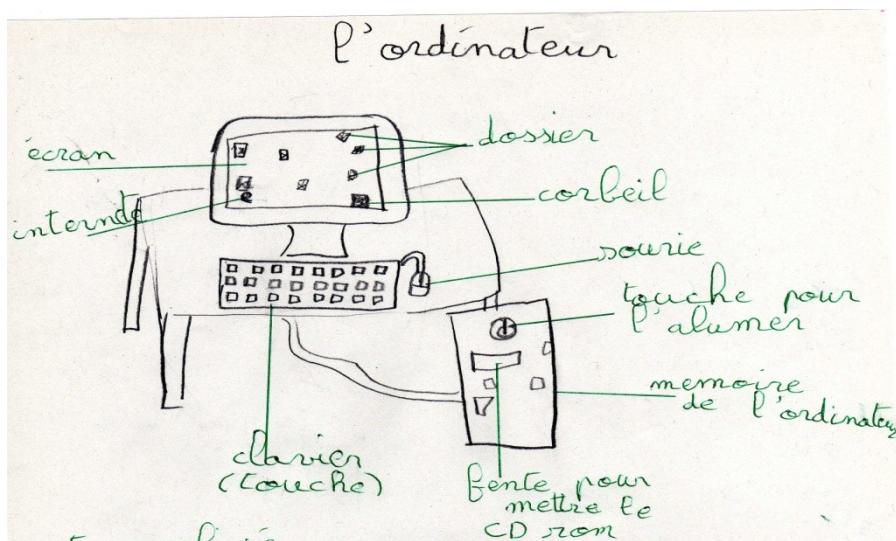 l'ordinateur
écran
dossier
internete
corbeil
sourie
touche pour
l'alumer
memoire
de l'ordinateur
clavier
(touche)
fente pour
mettre le
CD rom